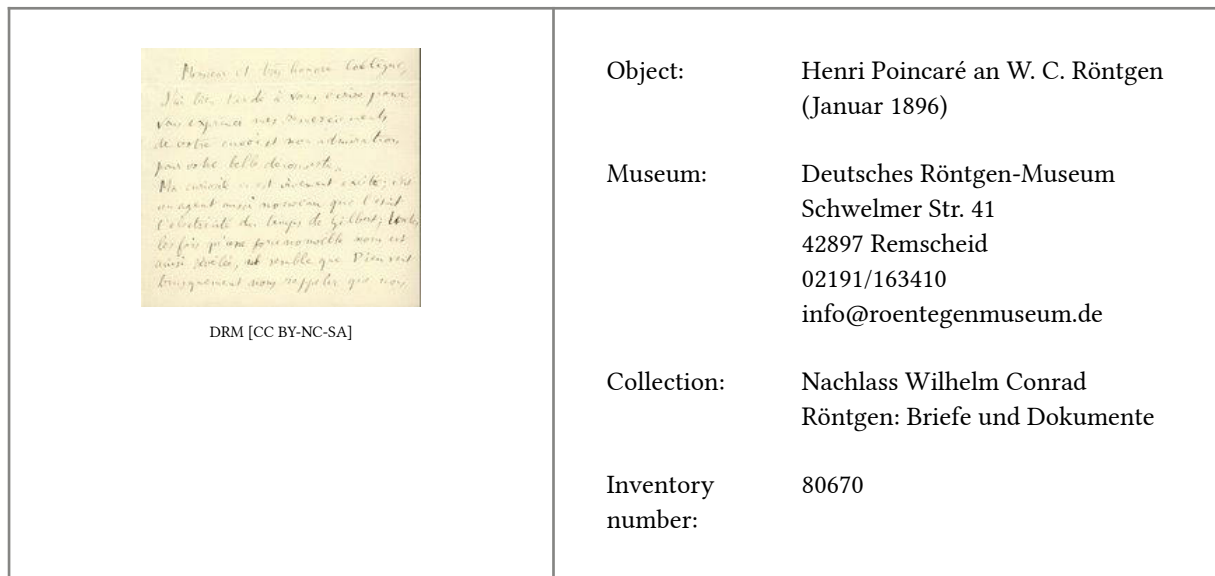 Monsieur et très honoré Collègue,
J'ai bien tardé à vous écrire pour
vous exprimer mes remerciements
de votre envoi et mon admiration
pour votre belle découverte.
Ma curiosité est vivement excitée;
un agent aussi nouveau que l'était
l'électricité du temps de Gilbert; toutes
les fois qu'une force nouvelle nous est
ainsi révélée, il semble que Dieu veut
brusquement nous rappeler que nous
DRM [CC BY-NC-SA]
Object: Henri Poincaré an W. C. Röntgen
(Januar 1896)
Museum: Deutsches Röntgen-Museum
Schwelmer Str. 41
42897 Remscheid
02191/163410
info@roentegenmuseum.de
Collection: Nachlass Wilhelm Conrad
Röntgen: Briefe und Dokumente
Inventory 80670
number: